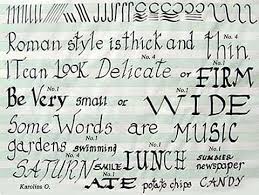 Roman style is thick and thin.
No. 4 No. 4
It Can Look Delicate or FIRM
No. 1 No. 1
Be Very small or WIDE
No. 1
Some Words are MUSIC
gardens swimming LUNCH SUMMER newspaper
No. 4 No. 1 No. 1
SATURN SMILE CANDY
Karolina O. ATE potato chips
No. 1